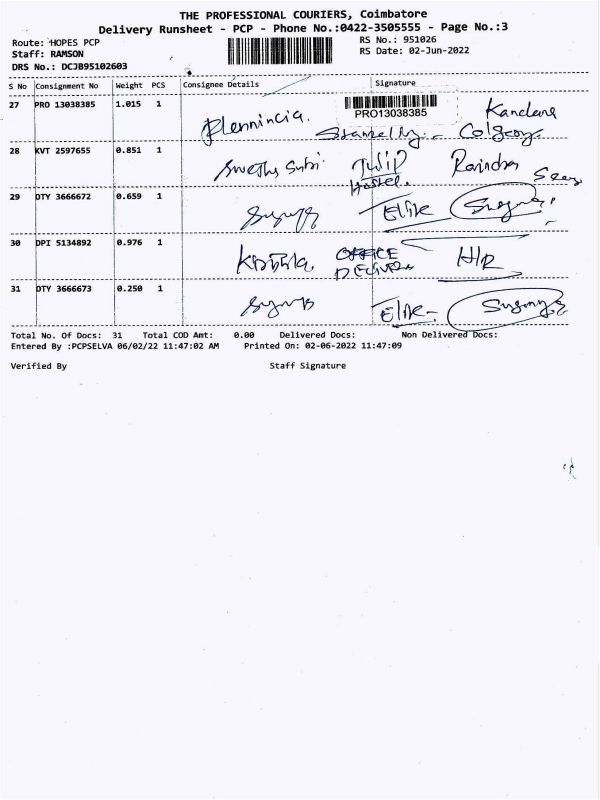 THE PROFESSIONAL COURIERS, Coimbatore
Delivery Runsheet - PCP - Phone No.:0422-3505555 - Page No.:3
Route: HOPES PCP
RS No.: 951026
Staff: RAMSON
RS Date: 02-Jun-2022
DRS No.: DCJB95102603
S No Consignment No Weight PCS Consignee Details Signature
27 PRO 13038385 1.015 1
PRO13038385
28 KVT 2597655 0.851 1 Swetha Tulip
Hostel.
29 DTY 3666672 0.659 1 Elite
30 DPI 5134892 0.976 1 OFFICE HR
31 DTY 3666673 0.250 1 Elite
Total No. Of Docs: 31 Total COD Amt: 0.00 Delivered Docs: Non Delivered Docs:
Entered By :PCPSELVA 06/02/22 11:47:02 AM Printed On: 02-06-2022 11:47:09
Verified By Staff Signature